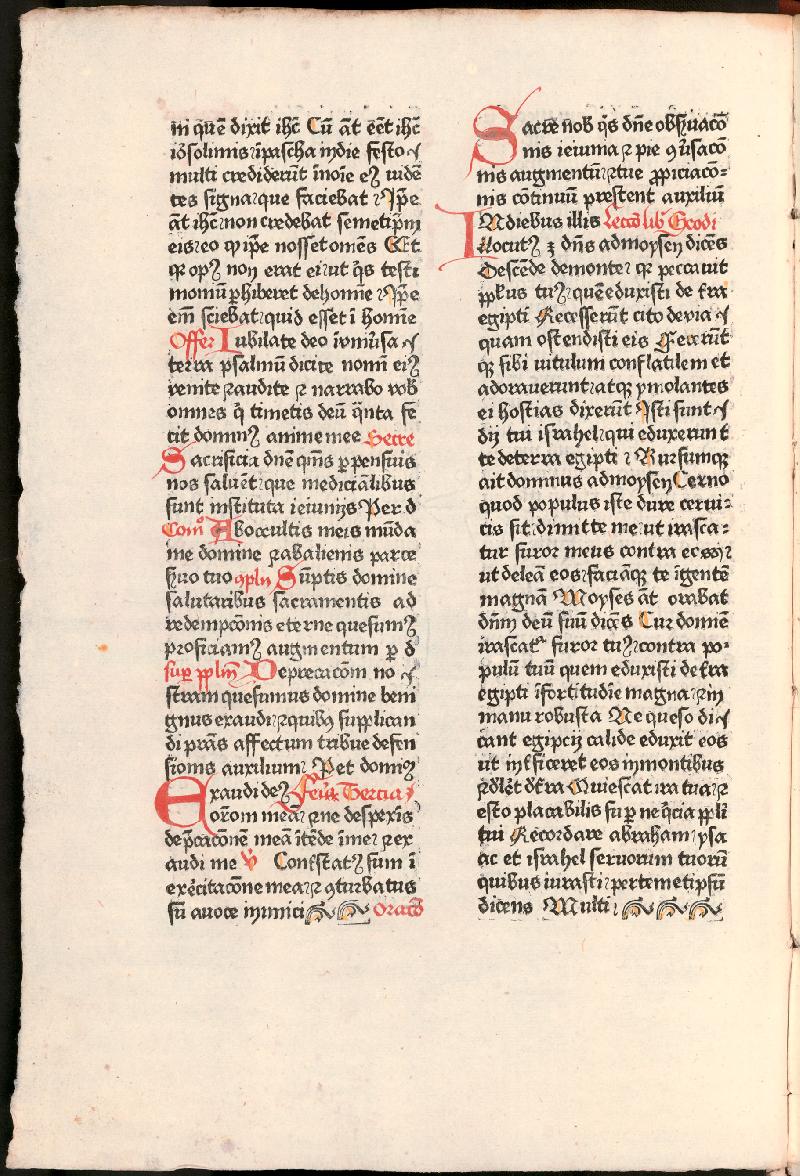 in quē dixit ihc̄ Cū āt eēt ihc̄
ioſolimis ī paſcha in die feſto
multi crediderūt ī noīe eꝫ viden
tes ſigna que faciebat Ip̄e
āt ihc̄ non credebat ſemetip̄m
eis eo ꝙ ip̄e noſſet omēs Et
qꝛ opꝫ non erat ei ut q̄s teſti
monium ꝑhiberet de homīe Ip̄e
em̄ ſciebat quid eſſet ī homīe
Offer Iubilate deo ōnīuſa
terra pſalmū dicite nomī eiꝫ
venite ꝛ audite ꝛ narrabo vob
omnes q̄ timetis deū q̄nta fe
cit domīnꝫ anime mee Secre
Sacrificia dn̄e qm̄s ꝓpenſius
nos ſaluēt que medicīalibus
ſunt inſtituta ieiunijs Per d
Com̄ Ab occultis meis mūda
me domine ꝛ ab alienis parce
ſervo tuo ꝯpln̄ Sūptis domine
ſalutaribus ſacramentis ad
redempcōnis eterne queſumꝫ
proficiamꝫ augmentum ꝑ d
ſuꝑ pp̄lm̄ Deprecacōm no
ſtram queſumus domine beni
gnus exaudi ꝛ quibꝫ ſupplican
di p̄ras affectum tribue defen
ſionis auxilium Pet domīꝫ
Exaudi deꝫ Feria Tercia
orōm meā ꝛ ne deſpexis
dep̄cacōnē meā ītēde ī me ꝛ ex
audi me ꝟ Conſtatꝫ ſum ī
exēcitacōne mea ꝛ ꝯturbatus
ſū a voce inimici Oracō
Sacre nob q̄s dn̄e obſeruacō
nis ieiunia ꝛ pie ꝯūſacō
nis augmentū ꝛ tue ꝓpiciacō
nis cōtinuū preſtent auxiliū
In diebus illis Lecco lib Exodi
locutꝫ ē dn̄s ad moyſen dicēs
Deſcēde de monte qꝛ peccauit
pp̄lus tuꝫ quē eduxiſti de t̄ra
egipti Receſſerūt cito de via
quam oſtendiſti eis Fecerūt
qꝫ ſibi vitulum conflatilem et
adorauerunt atqꝫ ymolantes
ei hoſtias dixerūt Iſti ſunt
dij tui iſrahel qui eduxerunt
te de terra egipti Rurſumqꝫ
ait dominus ad moyſen Cerno
quod populus iſte dure cerui
cis ſit dimitte me ut iraſca
tur furor meus contra eos ꝛ
ut deleā eos faciāqꝫ te īgentē
magnā Moyſes āt orabat
dn̄m deū ſuū dicēs Cur domīe
iraſcat᷑ furor tuꝫ contra po
pulū tuū quem eduxiſti de t̄ra
egipti ī fortitudīe magna ꝛ in
manu robuſta Ne queſo di
cant egipcij calide eduxit eos
ut int̄ficeret eos in montibus
ꝛ dēlet̄ d̄ t̄ra Quieſcat ira tua ꝛ
eſto placabilis ſuꝑ neq̄cia pp̄li
tui Recordare abraham yſa
ac et iſrahel ſeruorum tuorū
quibus iuraſti per temetipſū
dicens Multi